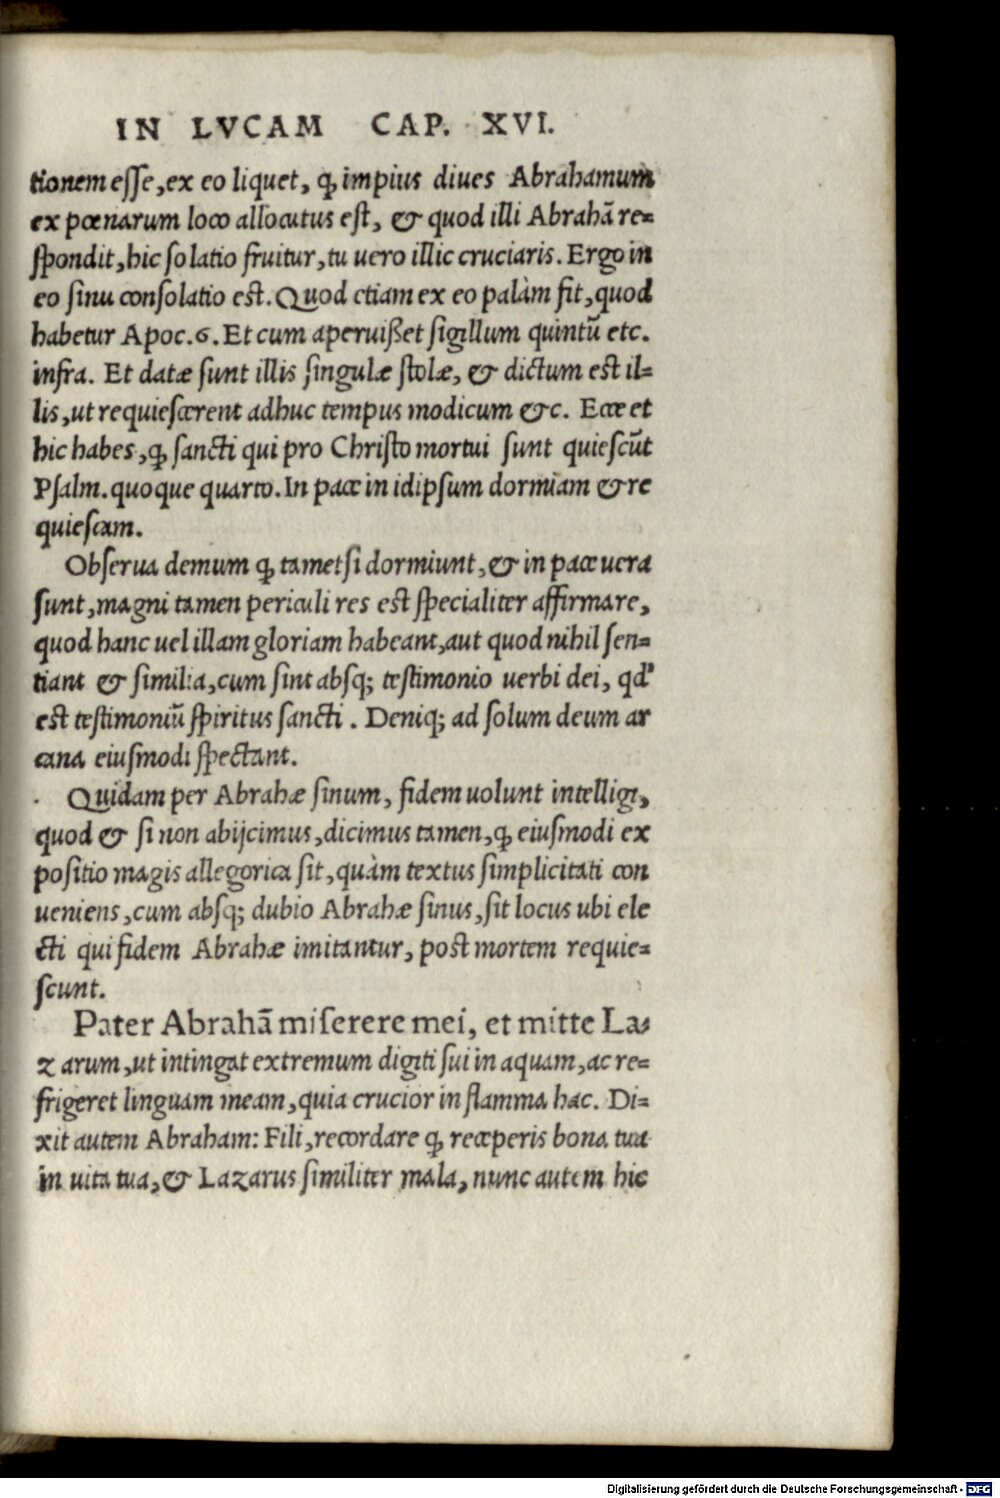 IN LVCAM CAP. XVI.
tionem esse, ex eo liquet, ꝙ impius diues Abrahamum
ex pœnarum loco allocutus est, & quod illi Abrahã re=
spondit, hic solatio fruitur, tu uero illic cruciaris. Ergo in
eo sinu consolatio est. Quod etiam ex eo palàm fit, quod
habetur Apoc. 6. Et cum aperuißet sigillum quintũ etc.
infra. Et datæ sunt illis singulæ stolæ, & dictum est il=
lis, ut requiescerent adhuc tempus modicum &c. Ecce et
hic habes, ꝙ sancti qui pro Christo mortui sunt quiescũt
Psalm. quoque quarto. In pace in idipsum dormiam & re
quiescam.
Obserua demum ꝙ tametsi dormiunt, & in pace uera
sunt, magni tamen periculi res est specialiter affirmare,
quod hanc uel illam gloriam habeant, aut quod nihil sen=
tiant & similia, cum sint absq; testimonio uerbi dei, qd'
est testimoniũ spiritus sancti. Deniq; ad solum deum ar
cana eiusmodi spectant.
Quidam per Abrahæ sinum, fidem uolunt intelligi,
quod & si non abijcimus, dicimus tamen, ꝙ eiusmodi ex
positio magis allegorica sit, quàm textus simplicitati con
ueniens, cum absq; dubio Abrahæ sinus, sit locus ubi ele
cti qui fidem Abrahæ imitantur, post mortem requie=
scunt.
Pater Abrahã miserere mei, et mitte La=
zarum, ut intingat extremum digiti sui in aquam, ac re=
frigeret linguam meam, quia crucior in flamma hac. Di=
xit autem Abraham: Fili, recordare ꝙ receperis bona tua
in uita tua, & Lazarus similiter mala, nunc autem hic
Digitalisierung gefördert durch die Deutsche Forschungsgemeinschaft - DFG